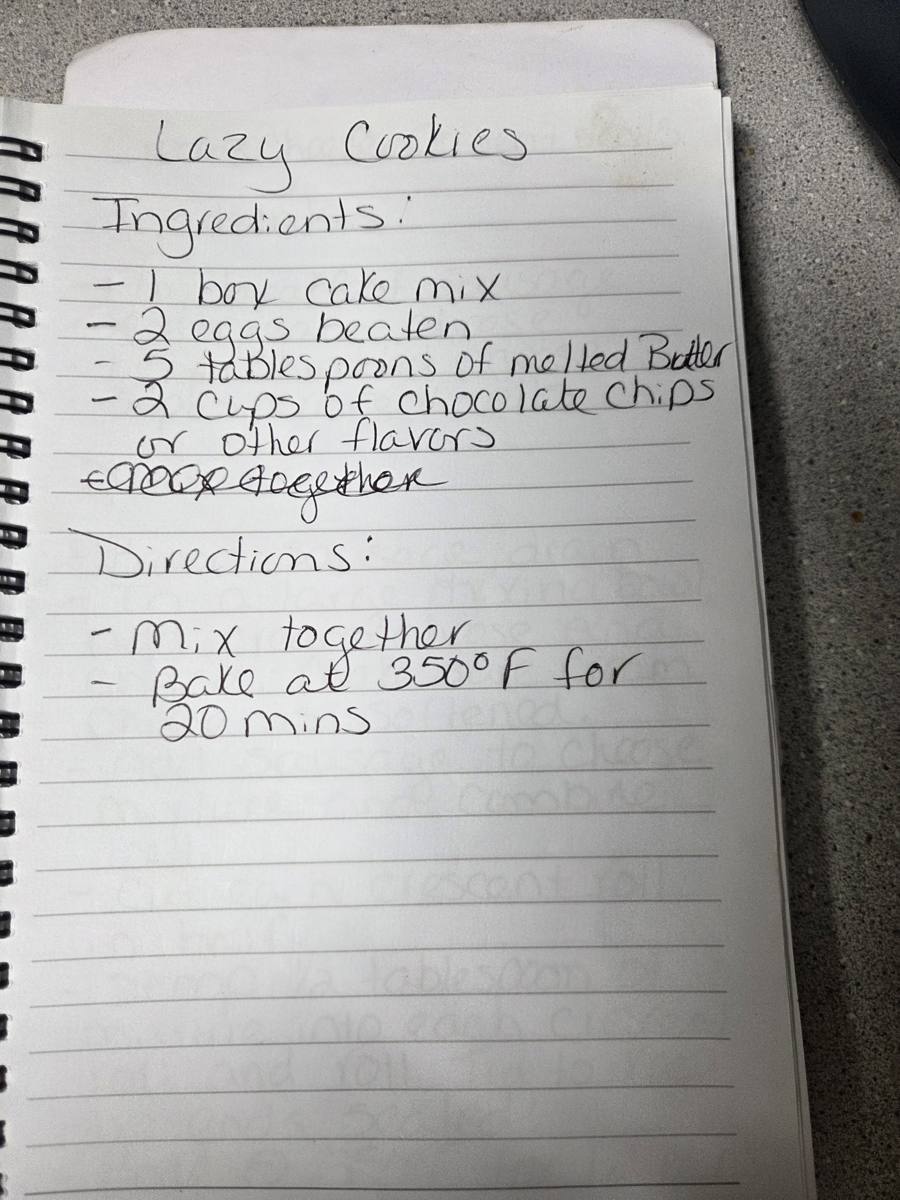 Lazy Cookies
Ingredients:
- 1 box cake mix
- 2 eggs beaten
- 5 tablespoons of melted Butter
- 2 cups of chocolate chips
or other flavors
together
Directions:
- Mix together
- Bake at 350°F for
20 mins